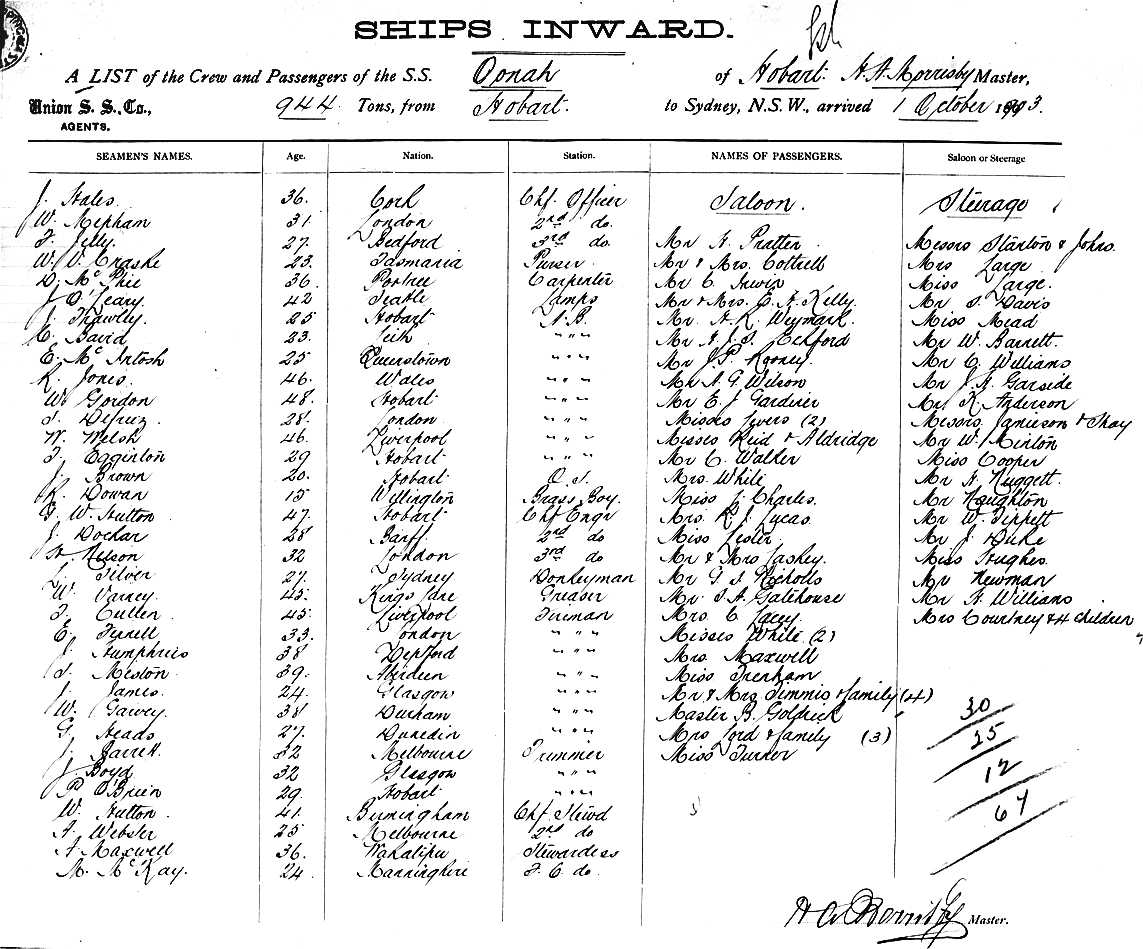 SHIPS INWARD.
A LIST of the Crew and Passengers of the S.S. Oonah of Hobart H. A. Morrisby Master,
Union S. S. Co., 944 Tons, from Hobart. to Sydney, N.S.W., arrived 1 October 1893.
AGENTS.
SEAMEN'S NAMES. Age. Nation. Station. NAMES OF PASSENGERS. Saloon or Steerage
J. Hales. 36. Cork Chf. Officer Saloon. Steerage
W. Mepham 31. London 2nd do.
27. Bedford 3rd do. Mr H. Pratter. Messrs Stanton & Johns.
23. Tasmania Purser. Mr & Mrs. Cottrell Mrs Large
D. McPhie 36. Portree Carpenter Mr C. Irwin Miss Large.
J. O'Leary. 42 Lamps Mr & Mrs. E. H. Kelly. Mr S. Davis
J. Thawley. 25 Hobart A.B. Mr. H. R. Weymark. Miss Mead
C. Baird 23. Leith " " Mr H. J. S. Eckford Mr W. Barnett.
E. McIntosh 25 Queenstown " " Mr J. P. Rooney. Mr C. Williams
R. Jones. 46. Wales " " Mr A. G. Wilson Mr J. H. Garside
W. Gordon 48. Hobart " " Mr E. J. Gardiner Mr K. Anderson
28. London " " Misses Ivers (2) Messrs. Jamieson & Shay
W. Welsh 46. Liverpool " " Misses Reid & Aldridge Mr W. Minton
T. Egginton 29 Hobart " " Mr C. Walker Miss Cooper
J. Brown 20. Hobart O.S. Mrs. White Mr H. Nuggett
R. Dowan 15 Wellington Brass Boy. Miss J. Charles. Mr Naughton
G. W. Hutton 47. Hobart Chf Engr Mrs. R. J. Lucas. Mr W. Tippett
J. Dockar 28 Banff 2nd do Miss Lester. Mr J. Duke
H. Nelson 32 London 3rd do Mr & Mrs Laskey. Miss Hughes.
L. Silver 27. Sydney Donkeyman Mr G. S. Nicholls Mr Newman
W. Varney 45. Greaser Mr. S. A. Gatehouse Mr H. Williams
T. Cullen 45. Liverpool Fireman Mrs C. Lacey. Mrs Courtney & 4 children
C. Tyrell 33. London " " Misses White (2)
J. Humphries 38 Deptford " " Mrs. Maxwell
T. Meston 39. Aberdeen " " Miss Trenham
J. James 24. Glasgow " " Mr & Mrs Timmis & family (4)
W. Garvey. 38 Durham " " Master B. Goldrick 30
G. Heads 27. Dunedin " " Mrs Lord & family (3) 25
J. Jarrett. 32 Melbourne Trimmer Miss Turner
J. Boyd 32 Glasgow " " 12
P. O'Brien 29. Hobart " "
W. Hutton 41. Birmingham Chf. Stewd 67
A. Webster 25 Melbourne 2nd do
A. Maxwell 36. Wakatipu Stewardess
M. McKay. 24. F. C. do.
Master.